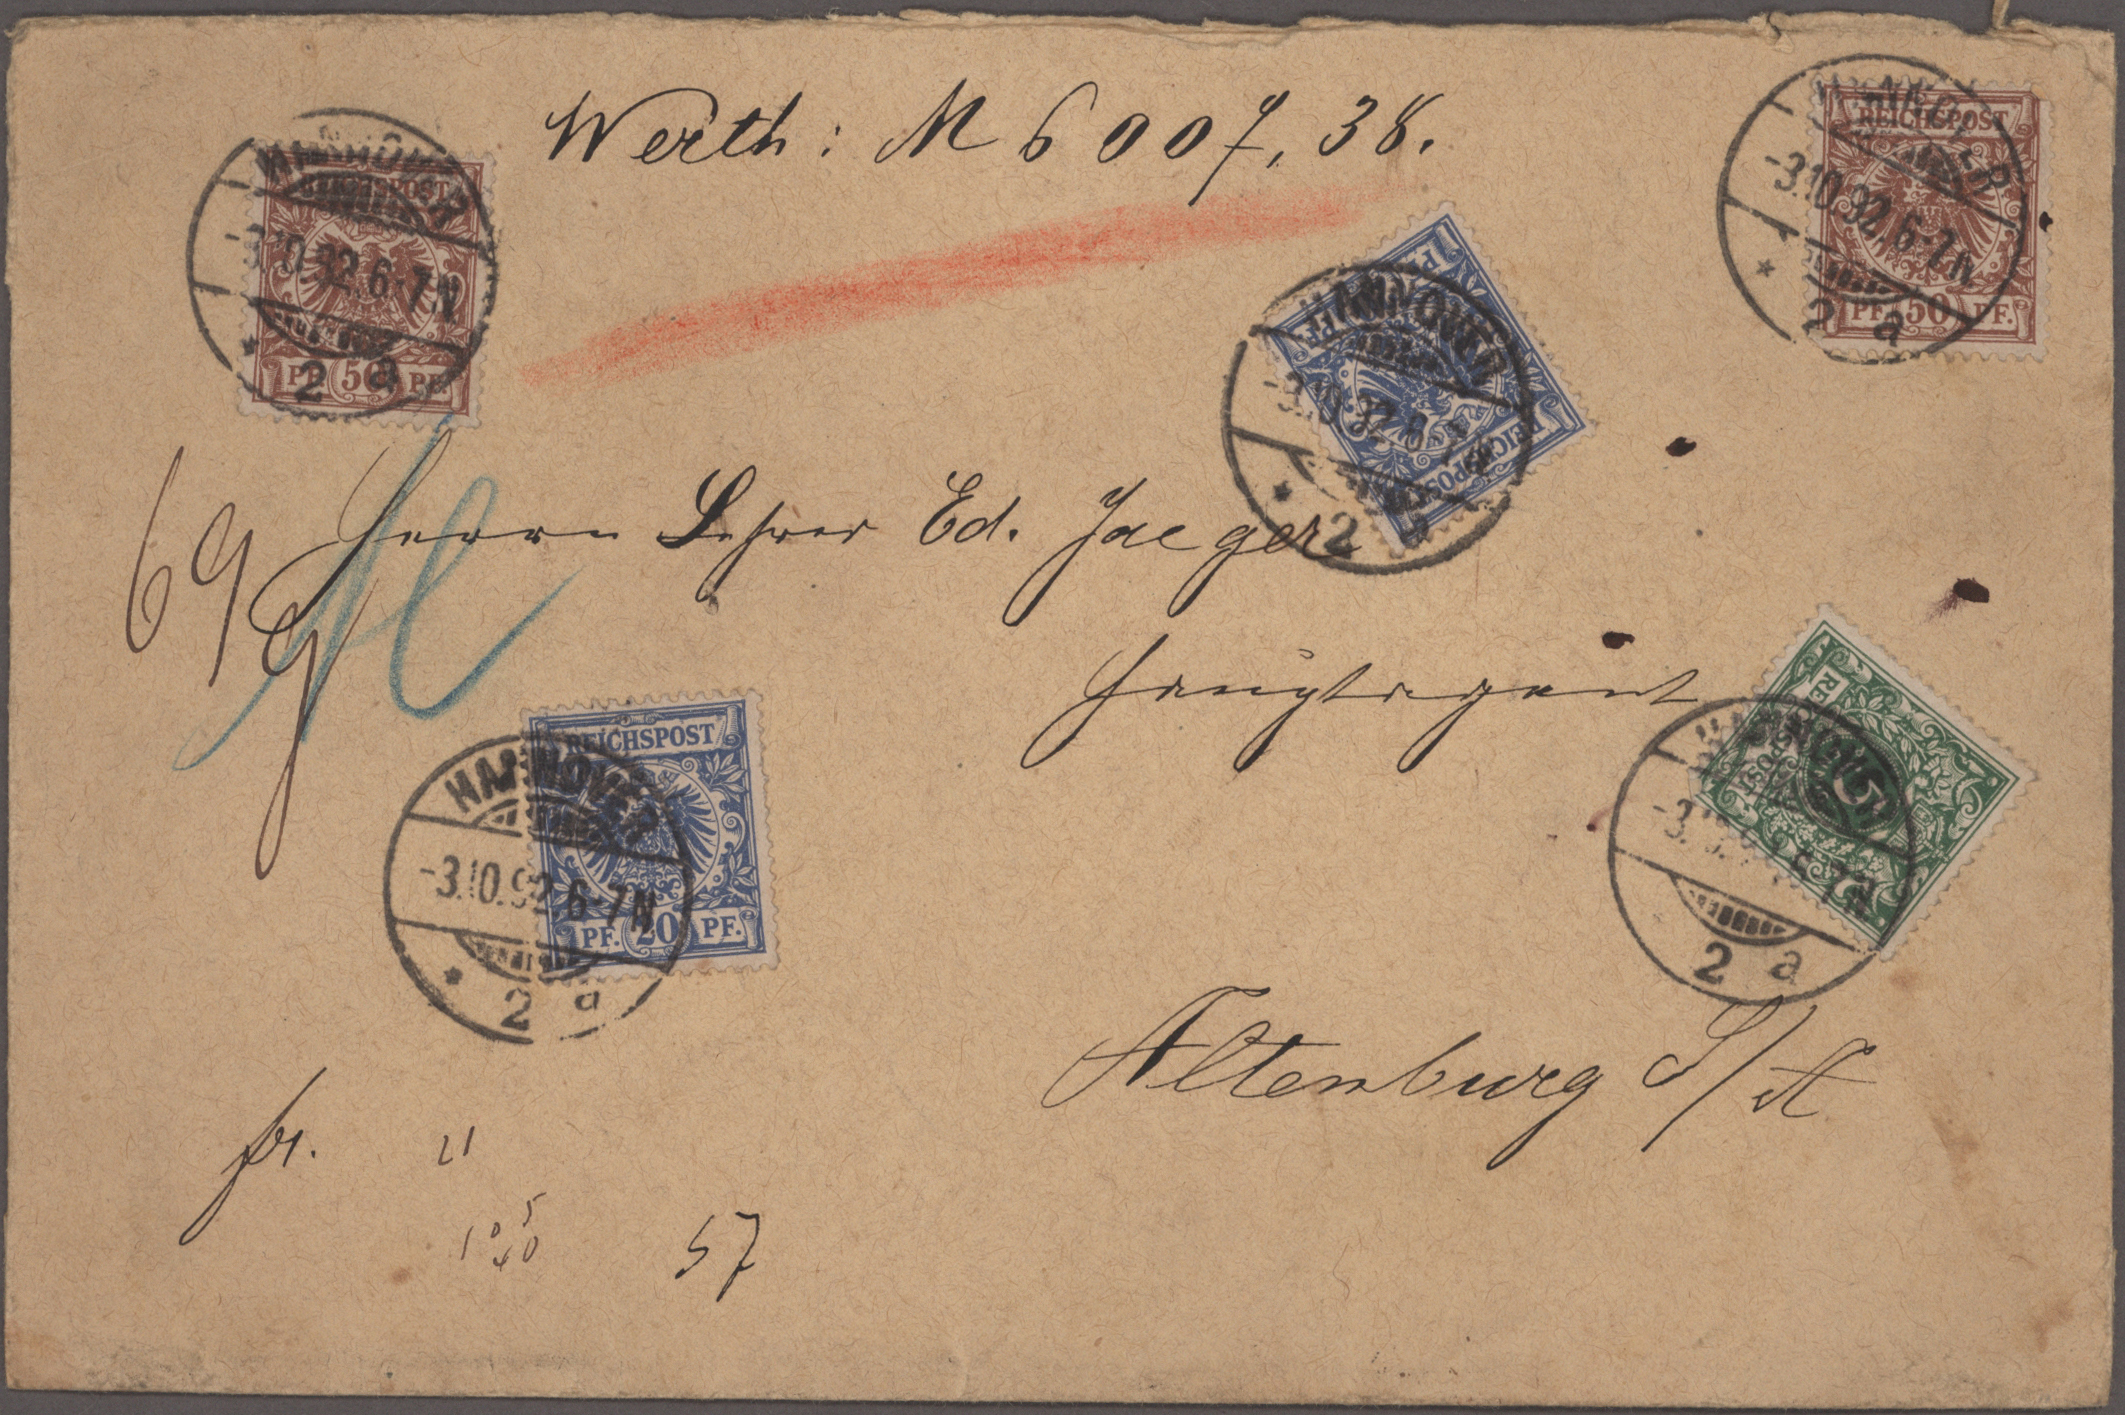 Werth: M 6007,38.
HANNOVER
-3.10.92.6-7N
* 2 a
REICHSPOST
PF. 50 PF.
HANNOVER
-3.10.92.6-7N
* 2 a
REICHSPOST
PF. 50 PF.
HANNOVER
-3.10.92.6-7N
* 2 a
REICHSPOST
69 g
Herrn Lehrer Ed. Jaeger
Hauptagent
HANNOVER
-3.10.92.6-7N
* 2 a
REICHSPOST
PF. 20 PF.
HANNOVER
6-7N
2 a
5
Altenburg S/A
fr.
57